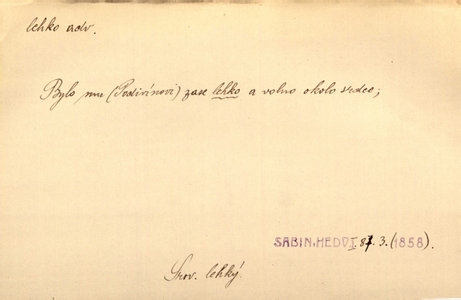 lehko adv.
Bylo mu (Podivínovi) zase lehko a volno okolo srdce;
SABIN. HEDV I. 3. (1858).
Srov. lehký.